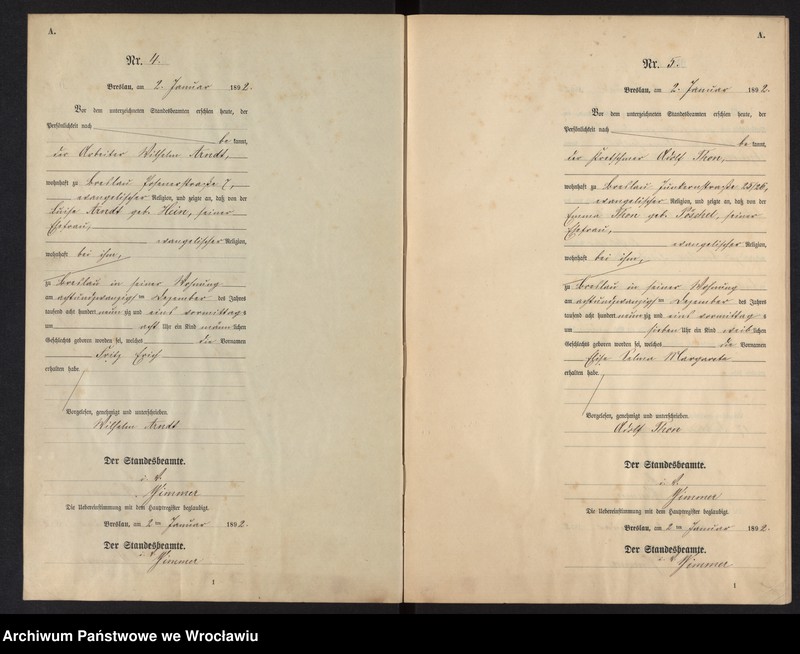 A.
Nr. 4.
Breslau, am 2. Januar 1892.
Vor dem unterzeichneten Standesbeamten erschien heute, der
Persönlichkeit nach
be kannt,
der Arbeiter Wilhelm Arndt,
wohnhaft zu Breslau Posenerstraße 7,
evangelischer Religion, und zeigte an, daß von der
Luise Arndt geb. Hein, seiner
Ehefrau,
evangelischer Religion,
wohnhaft bei ihm,
zu Breslau in seiner Wohnung
am achtundzwanzigsten Dezember des Jahres
tausend acht hundert neun zig und eins vormittags
um acht Uhr ein Kind männ lichen
Geschlechts geboren worden sei, welches die Vornamen
Fritz Erich
erhalten habe.
Vorgelesen, genehmigt und unterschrieben.
Wilhelm Arndt
Der Standesbeamte.
i. V.
Nimmer
Die Uebereinstimmung mit dem Hauptregister beglaubigt.
Breslau, am 2ten Januar 1892.
Der Standesbeamte.
i. V. Nimmer
1
A.
Nr. 5.
Breslau, am 2. Januar 1892.
Vor dem unterzeichneten Standesbeamten erschien heute, der
Persönlichkeit nach
be kannt,
der Kretschmer Adolf Thon,
wohnhaft zu Breslau Junkernstraße 25/26,
evangelischer Religion, und zeigte an, daß von der
Emma Thon geb. Pöschel, seiner
Ehefrau,
evangelischer Religion,
wohnhaft bei ihm,
zu Breslau in seiner Wohnung
am achtundzwanzigsten Dezember des Jahres
tausend acht hundert neun zig und eins vormittags
um sieben Uhr ein Kind weib lichen
Geschlechts geboren worden sei, welches die Vornamen
Else Selma Margarete
erhalten habe.
Vorgelesen, genehmigt und unterschrieben.
Adolf Thon
Der Standesbeamte.
i. V.
Nimmer
Die Uebereinstimmung mit dem Hauptregister beglaubigt.
Breslau, am 2ten Januar 1892.
Der Standesbeamte.
i. V. Nimmer
1
Archiwum Państwowe we Wrocławiu